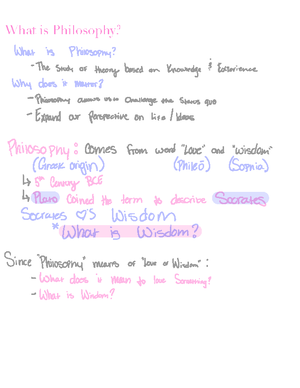 What is Philosophy?
What is Philosophy?
- The Study of theory based on Knowledge & Experience
Why does it matter?
- Philosophy allows us to Challenge the Status quo
- Expand our Perspective on life / Ideas
Philosophy: Comes from word "Love" and "Wisdom"
(Greek origin) (Phileō) (Sophia)
↳ 5th Century BCE
↳ Plato Coined the term to describe Socrates
Socrates ♡'S Wisdom
* What is Wisdom?
Since "Philosophy" means of "love of Wisdom":
- What does it mean to love Something?
- What is Wisdom?